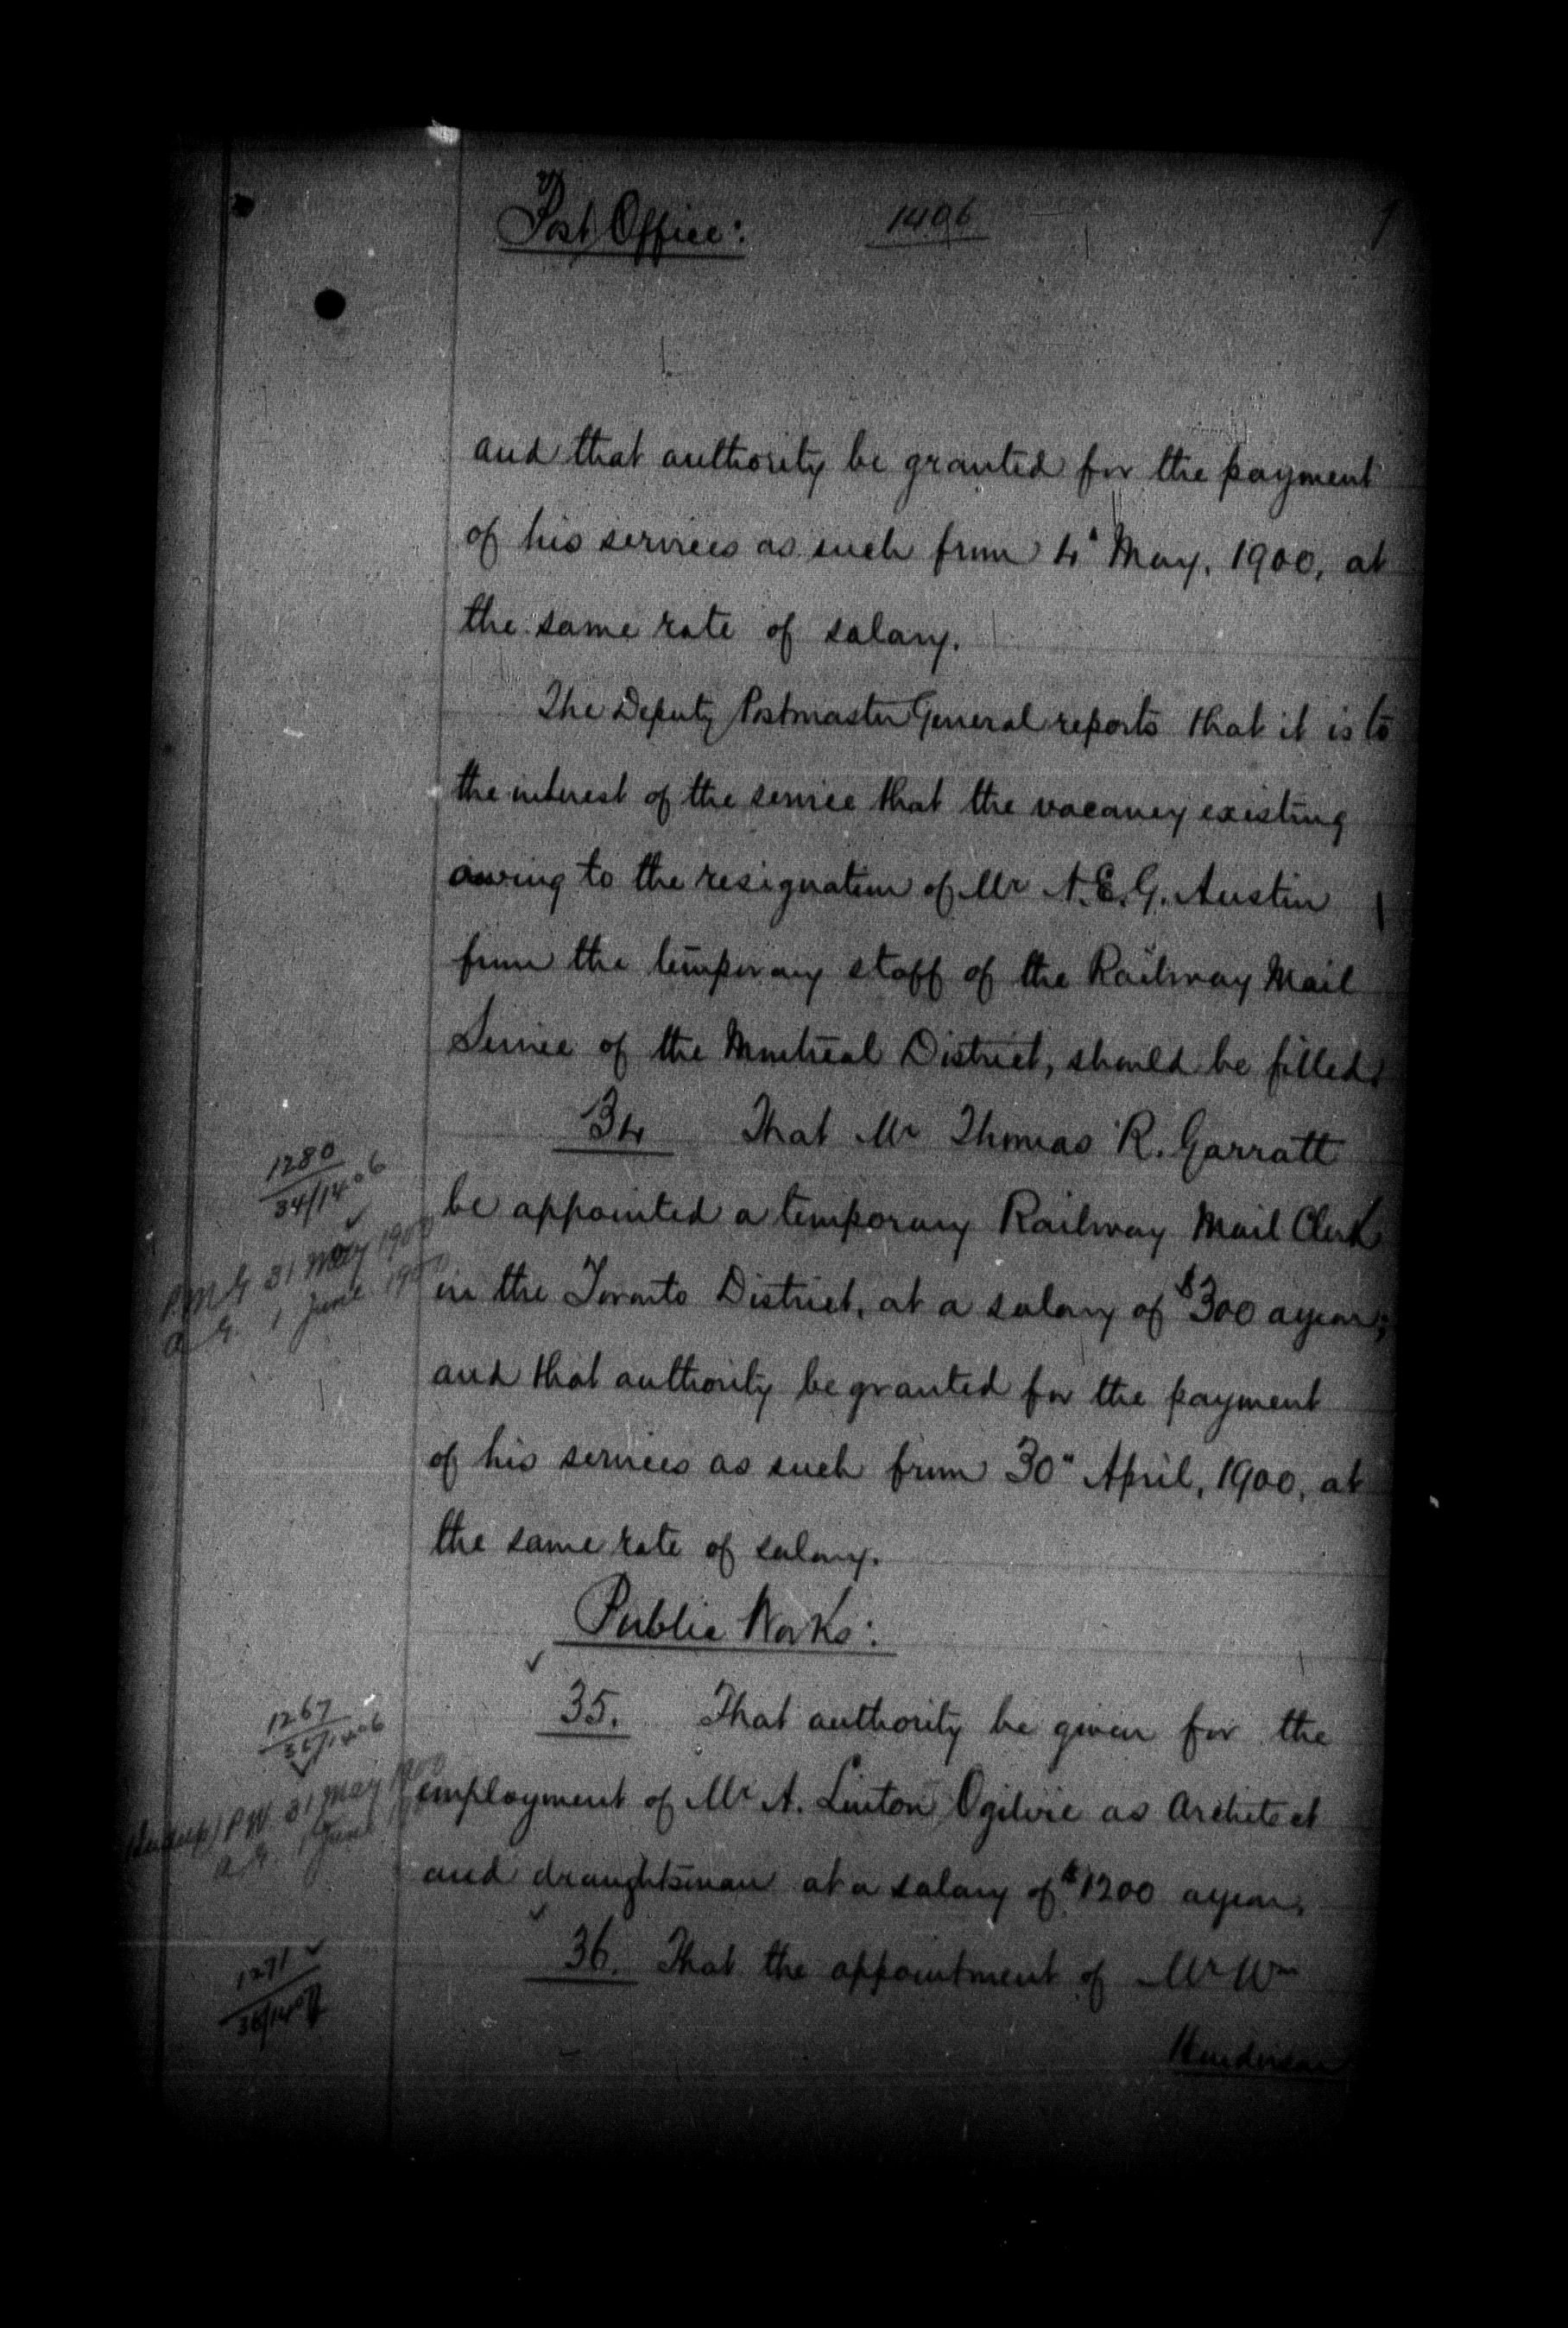 Post Office: 1406
and that authority be granted for the payment
of his services as such from 4" May, 1900, at
the same rate of salary.
The Deputy Postmaster General reports that it is to
the interest of the service that the vacancy existing
owing to the resignation of Mr A. E. G. Austin
from the temporary staff of the Railway Mail
Service of the Montreal District, should be filled.
34 That Mr Thomas R. Garratt
1280
34/1406
be appointed a temporary Railway Mail Clerk
P.M.G 31 May 1900
A.G. 1 June 1900
in the Toronto District, at a salary of $300 a year;
and that authority be granted for the payment
of his services as such from 30" April, 1900, at
the same rate of salary.
Public Works:
35. That authority be given for the
1267
35/1406
employment of Mr A. Linton Ogilvie as Architect
P.W. 31 May 1900
A.G. 1 June
and draughtsman at a salary of $1200 a year.
36. That the appointment of Mr Wm
1271
Henderson